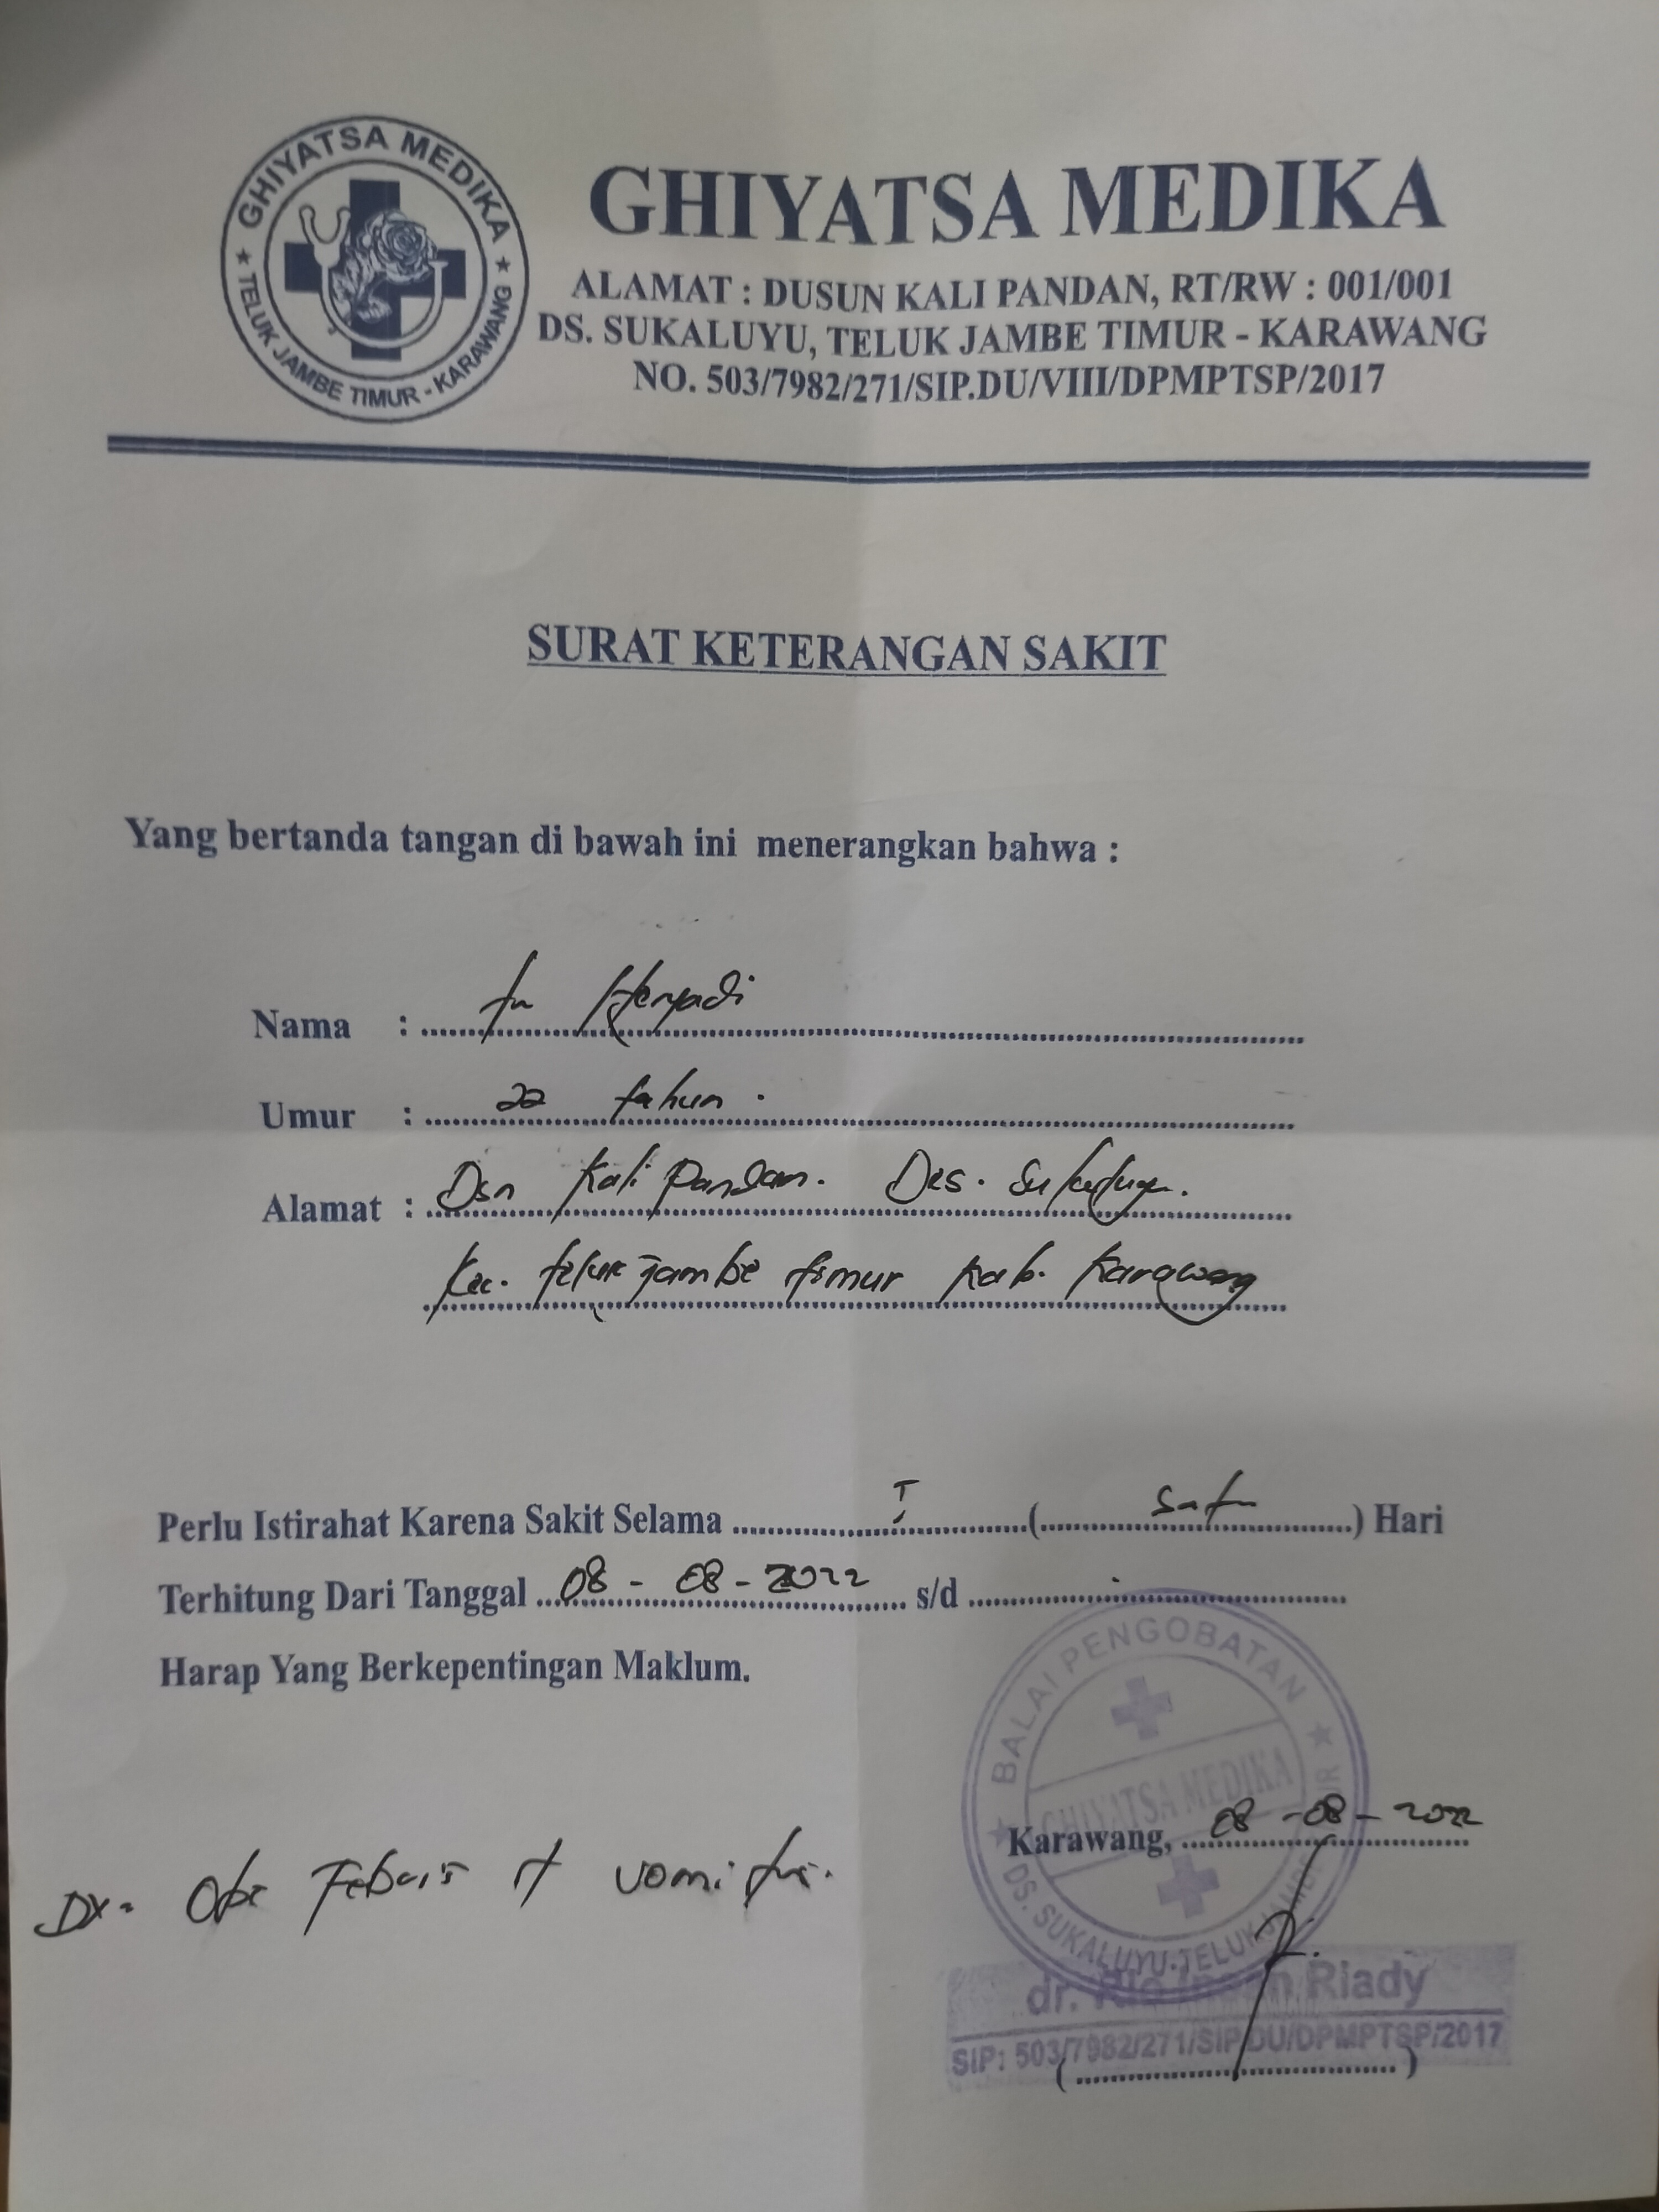 GHIYATSA MEDIKA
TELUK JAMBE TIMUR - KARAWANG
GHIYATSA MEDIKA
ALAMAT : DUSUN KALI PANDAN, RT/RW : 001/001
DS. SUKALUYU, TELUK JAMBE TIMUR - KARAWANG
NO. 503/7982/271/SIP.DU/VIII/DPMPTSP/2017
SURAT KETERANGAN SAKIT
Yang bertanda tangan di bawah ini menerangkan bahwa :
Nama : Heryadi
Umur : 22 tahun.
Alamat : Dsn Kali Pandan. Des. Sukaluyu.
Kec. Teluk jambe timur Kab. Karawang
Perlu Istirahat Karena Sakit Selama I (satu) Hari
Terhitung Dari Tanggal 08 - 08 - 2022 s/d
Harap Yang Berkepentingan Maklum.
BALAI PENGOBATAN
GHIYATSA MEDIKA
DS. SUKALUYU-TELUK JAMBE TIMUR
Karawang, 08 - 08 - 2022
DX= Febris
dr. Riady
SIP: 503/7982/271/SIP.DU/DPMPTSP/2017